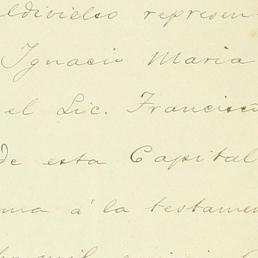 ldivielso represen
Ignacio Maria
el Lic. Francisco
de esta Capital
ma á la testamen
mil